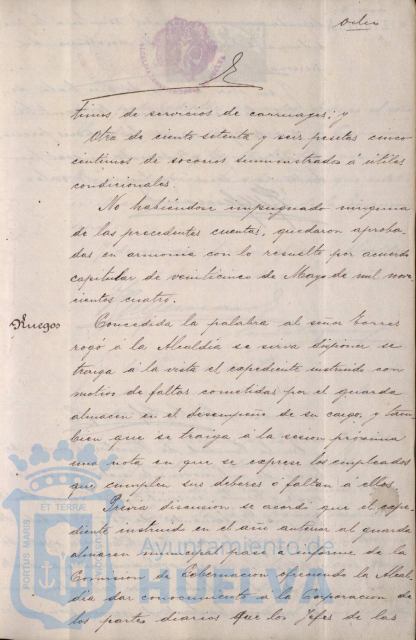 ocho
timos de servicios de carruages; y
Otra de ciento setenta y seis pesetas cinco
céntimos de socorros suministrados á útiles
condicionales.
No habiéndose impugnado ninguna
de las precedentes cuentas, quedaron aproba-
das en armonia con lo resuelto por acuerdo
capitular de veinticinco de Mayo de mil nove-
cientos cuatro.
Ruegos
Concedida la palabra al señor Torres
rogó á la Alcaldia se sirva disponer se
traiga á la vista el expediente instruido con
motivo de faltas cometidas por el guarda
almacen en el desempeño de su cargo, y tam-
bien que se traiga á la sesion próxima
una nota en que se exprese los empleados
que cumplen sus deberes ó faltan á ellos.
Prévia discusion se acordó que el expe-
diente instruido en el año anterior al guarda
almacen municipal pase á informe de la
Comision de Gobernacion ofreciendo la Alcal-
dia dar conocimiento á la Corporacion de
los partes diarios que los Jefes de las
PORTUS MARIS ET TERRAE CUSTODIA
Ayuntamiento de
HUELVA